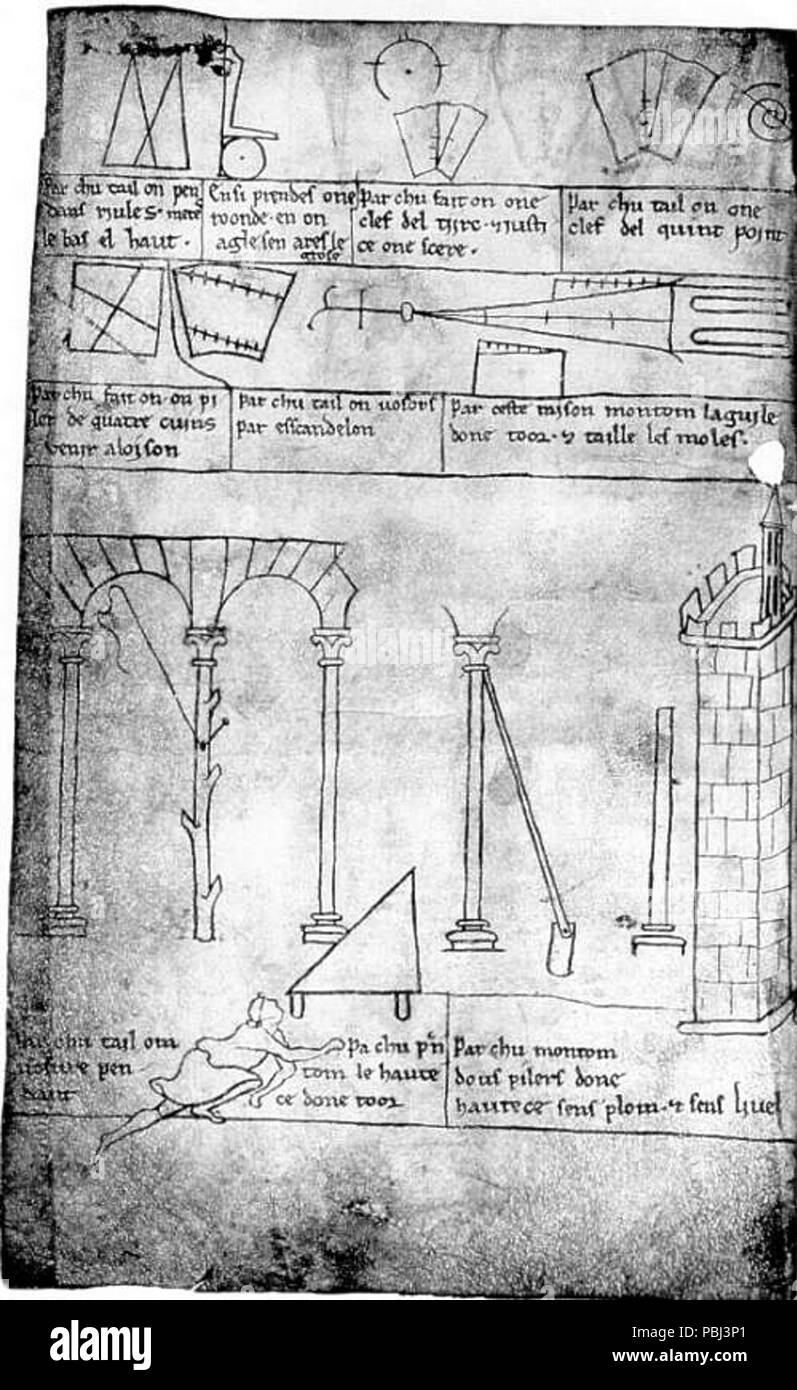 Par chu tail on pen
dans riules · mete
le bas el haut .
Ensi prendes one
roonde · en on
agle sen ares le
grose
Par chu fait on one
clef del tirc · & justi
ce one scere .
Par chu tail on one
clef del quint point
Par chu fait on on pi
ler de quatre cuins
venir aloison
Par chu tail on vosors
par escandelon
Par ceste raison montom laguile
done toor · & taille les moles .
Par chu tail om
vosure pen
dant
Pa chu prn
tom le haute
ce done toor
Par chu montom
dous pilers done
hautece sens plom · & sens livel
alamy
alamy
alamy
Image ID: PBJ3P1
www.alamy.com